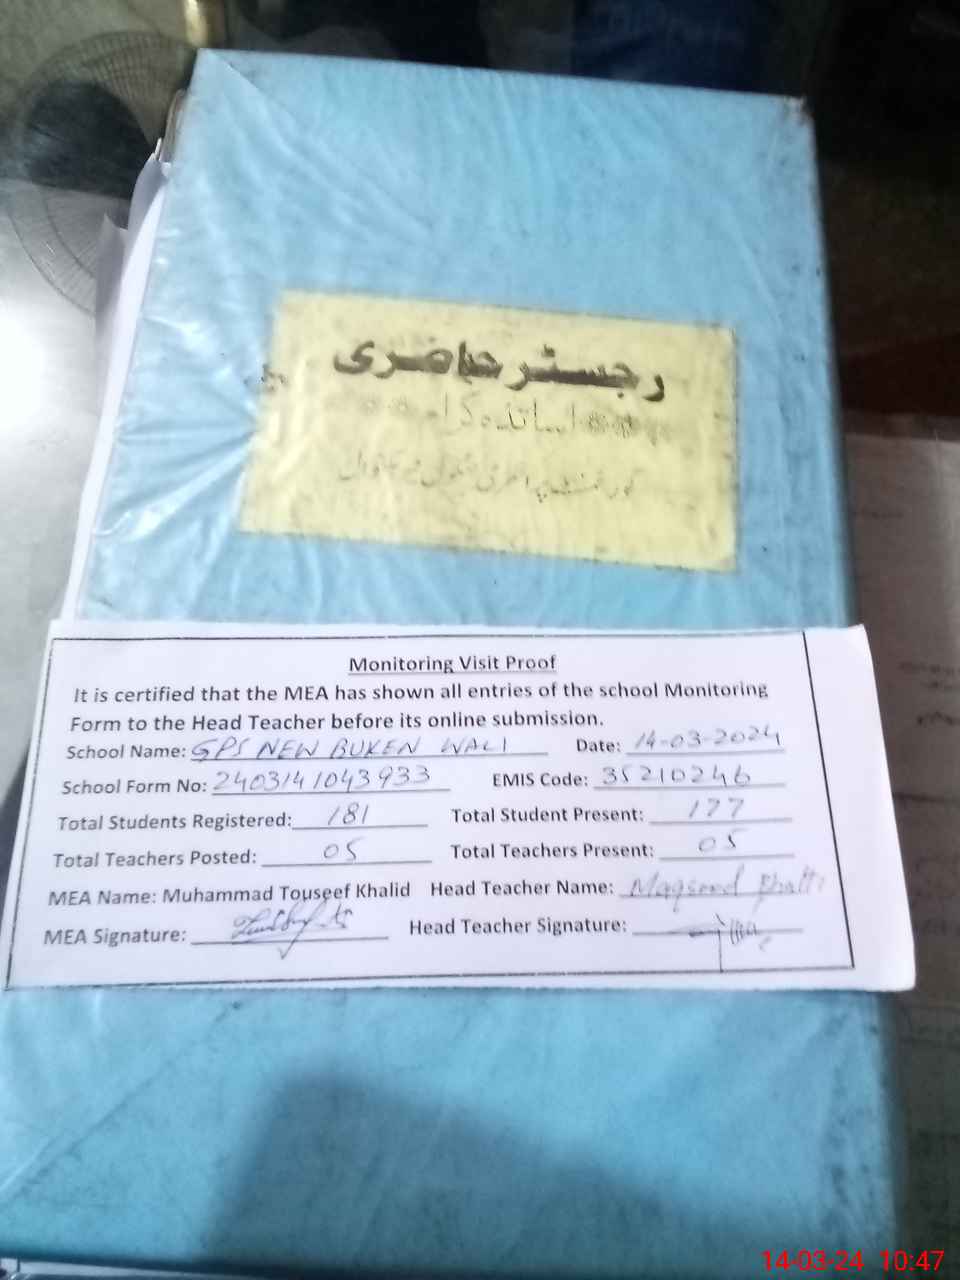 رجسٹر حاضری
اساتذہ کرام
گورنمنٹ پرائمری سکول
Monitoring Visit Proof
It is certified that the MEA has shown all entries of the school Monitoring
Form to the Head Teacher before its online submission.
School Name: GPS NEW BUKEN WALI Date: 14-03-2024
School Form No: 2403141043933 EMIS Code: 35210246
Total Students Registered: 181 Total Student Present: 177
Total Teachers Posted: 05 Total Teachers Present: 05
MEA Name: Muhammad Touseef Khalid Head Teacher Name: Maqsood Bhatti
MEA Signature: Head Teacher Signature:
14-03-24 10:47